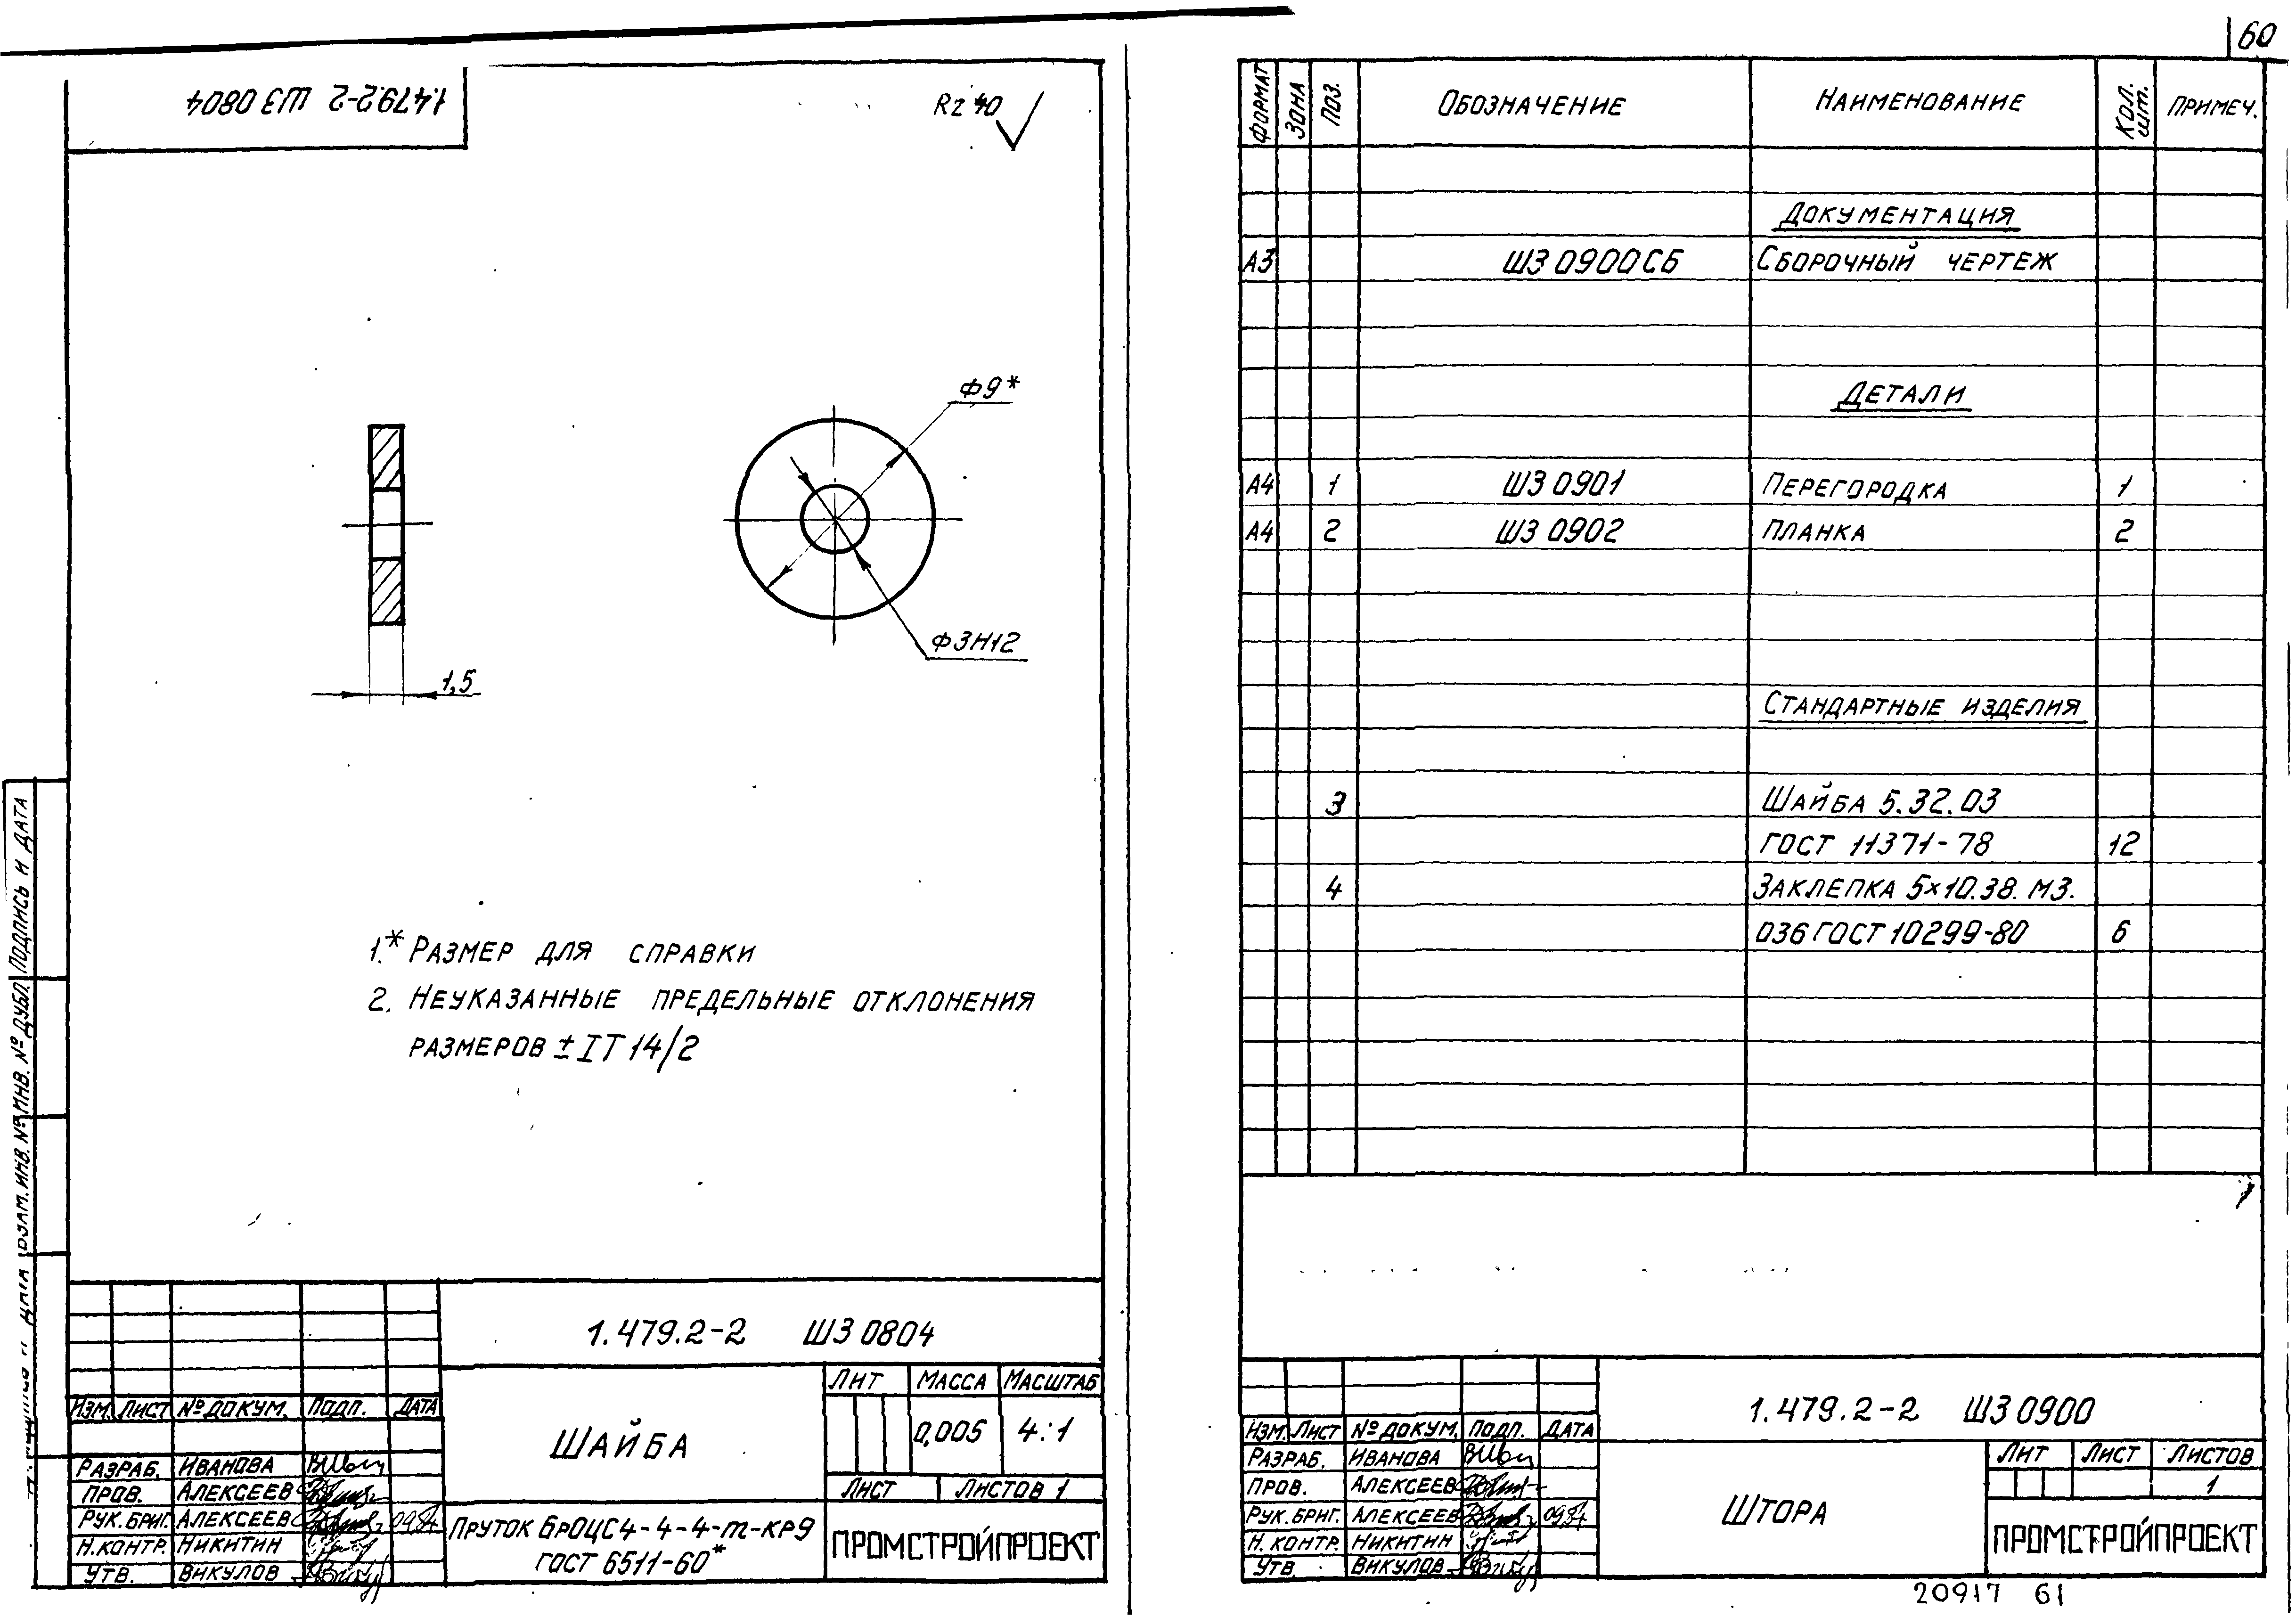 60
1.479.2-2 ШЗ 0804
Rz 40
Ф9*
Ф3Н12
1,5
1.* Размер для справки
2. Неуказанные предельные отклонения
размеров ± IT 14/2
Подпись и дата
Инв. № дубл.
Взам. инв. №
1.479.2-2 ШЗ 0804
Изм. Лист № докум. Подп. Дата
Разраб. Иванова
Пров. Алексеев
Рук. бриг. Алексеев 09.84
Н. контр. Никитин
Утв. Викулов
Шайба
Лит Масса Масштаб
0,005 4:1
Лист Листов 1
Пруток БрОЦС4-4-4-т-кр9
ГОСТ 6511-60*
ПРОМСТРОЙПРОЕКТ
Формат Зона Поз. Обозначение Наименование Кол. шт. Примеч.
Документация
А3 ШЗ 0900СБ Сборочный чертеж
Детали
А4 1 ШЗ 0901 Перегородка 1
А4 2 ШЗ 0902 Планка 2
Стандартные изделия
3 Шайба 5.32.03
ГОСТ 11371-78 12
4 Заклепка 5×10.38.М3.
036 ГОСТ 10299-80 6
1.479.2-2 ШЗ 0900
Изм. Лист № докум. Подп. Дата
Разраб. Иванова
Пров. Алексеев
Рук. бриг. Алексеев 09.84
Н. контр. Никитин
Утв. Викулов
Штора
Лит Лист Листов
1
ПРОМСТРОЙПРОЕКТ
20917 61